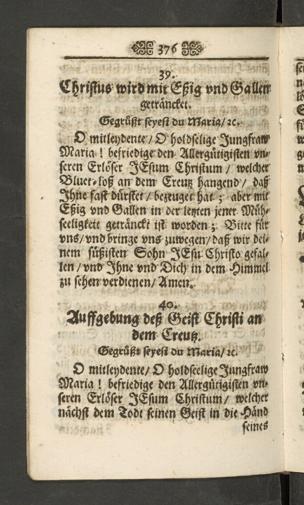 376
39.
Christus wird mit Eßig vnd Gallen
geträncket.
Gegrüßt seyest du Maria/ ꝛc.
O mitleydente/ O holdselige Jungfraw
Maria! befriedige den Allergütigisten vn-
seren Erlöser JEsum Christum/ welcher
Bluet-loß an dem Creutz hangend/ daß
Jhne fast dürstet/ bezeuget hat; aber mit
Eßig vnd Gallen in der letzten jener Müh-
seeligkeit geträncket ist worden; Bitte für
vns/ vnd bringe vns zuwegen/ daß wir dei-
nem süßisten Sohn JEsu Christo gefal-
len/ vnd Jhne vnd Dich in dem Himmel
zu sehen verdienen/ Amen.
40.
Auffgebung deß Geist Christi an
dem Creutz.
Gegrüßt seyest du Maria/ ꝛc.
O mitleydente/ O holdseelige Jungfraw
Maria! befriedige den Allergütigisten vn-
seren Erlöser JEsum Christum/ welcher
nächst dem Todt seinen Geist in die Händ
seines